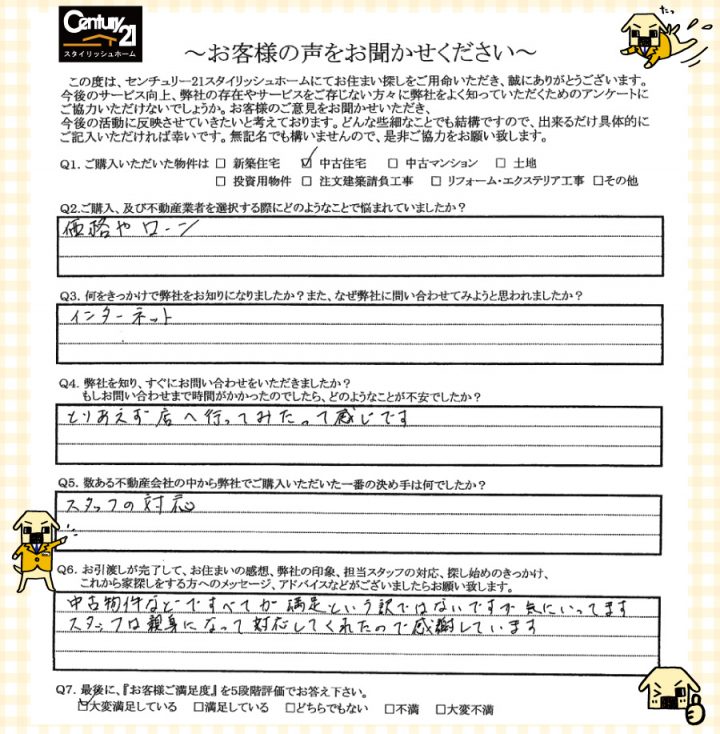 Century 21
スタイリッシュホーム
たっ
～お客様の声をお聞かせください～
この度は、センチュリー21スタイリッシュホームにてお住まい探しをご用命いただき、誠にありがとうございます。
今後のサービス向上、弊社の存在やサービスをご存じない方々に弊社をよく知っていただくためのアンケートに
ご協力いただけないでしょうか。お客様のご意見をお聞かせいただき、
今後の活動に反映させていきたいと考えております。どんな些細なことでも結構ですので、出来るだけ具体的に
ご記入いただければ幸いです。無記名でも構いませんので、是非ご協力をお願い致します。
Q1. ご購入いただいた物件は □ 新築住宅 ☑ 中古住宅 □ 中古マンション □ 土地
□ 投資用物件 □ 注文建築請負工事 □ リフォーム・エクステリア工事 □その他
Q2.ご購入、及び不動産業者を選択する際にどのようなことで悩まれていましたか？
価格やローン
Q3. 何をきっかけで弊社をお知りになりましたか？また、なぜ弊社に問い合わせてみようと思われましたか？
インターネット
Q4. 弊社を知り、すぐにお問い合わせをいただきましたか？
もしお問い合わせまで時間がかかったのでしたら、どのようなことが不安でしたか？
とりあえず店へ行ってみたって感じです
Q5. 数ある不動産会社の中から弊社でご購入いただいた一番の決め手は何でしたか？
スタッフの対応
Q6. お引渡しが完了して、お住まいの感想、弊社の印象、担当スタッフの対応、探し始めのきっかけ、
これから家探しをする方へのメッセージ、アドバイスなどがございましたらお願い致します。
中古物件なのですべてが満足という訳ではないですが気にいってます
スタッフは親身になって対応してくれたので感謝しています
Q7. 最後に、『お客様ご満足度』を5段階評価でお答え下さい。
☑大変満足している □満足している □どちらでもない □不満 □大変不満